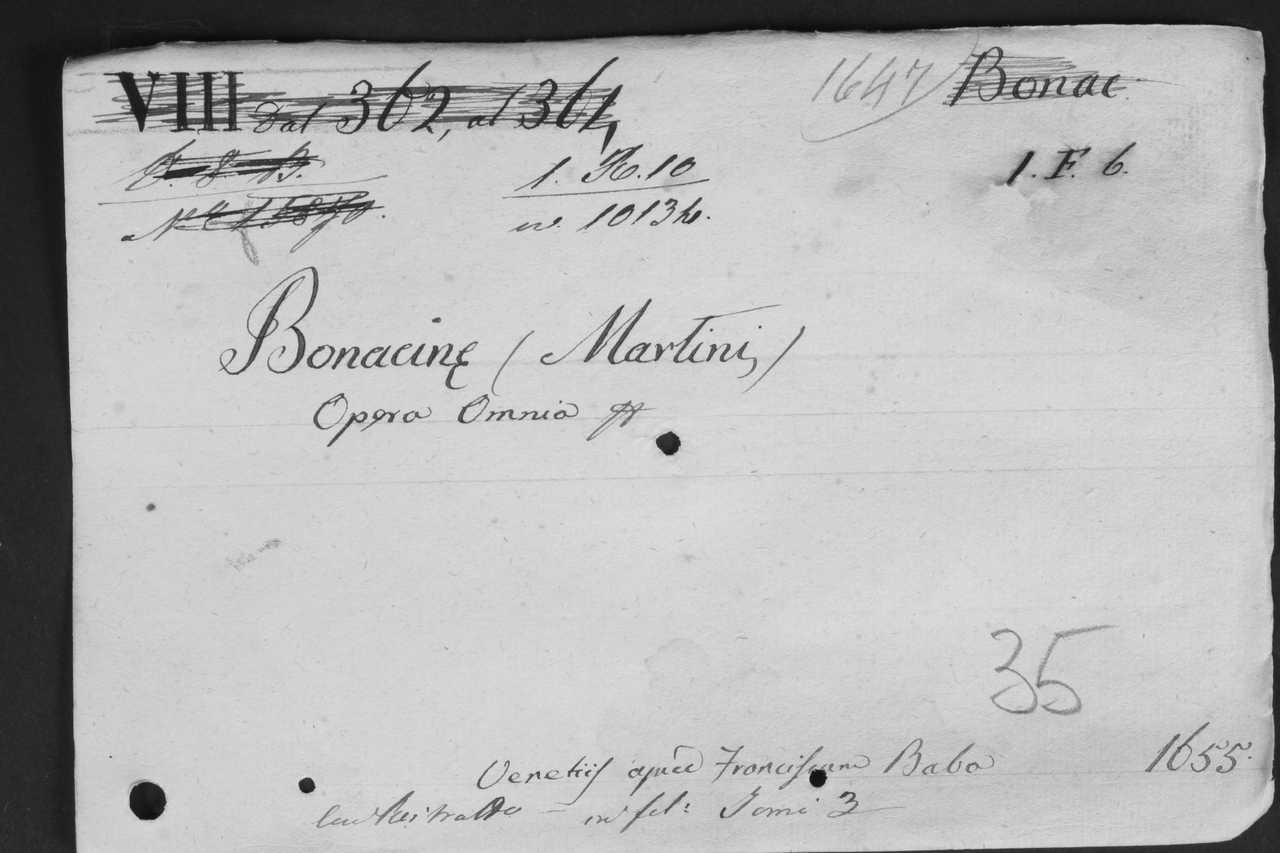 VIII dal 362, al 364,
1647
Bonac
1. H. 10
1. F. 6.
Bonacinę (Martini)
Opera Omnia
35
Venetiis apud Franciscum Baba 1655.
con Ritratto – in fol: Tomi 3